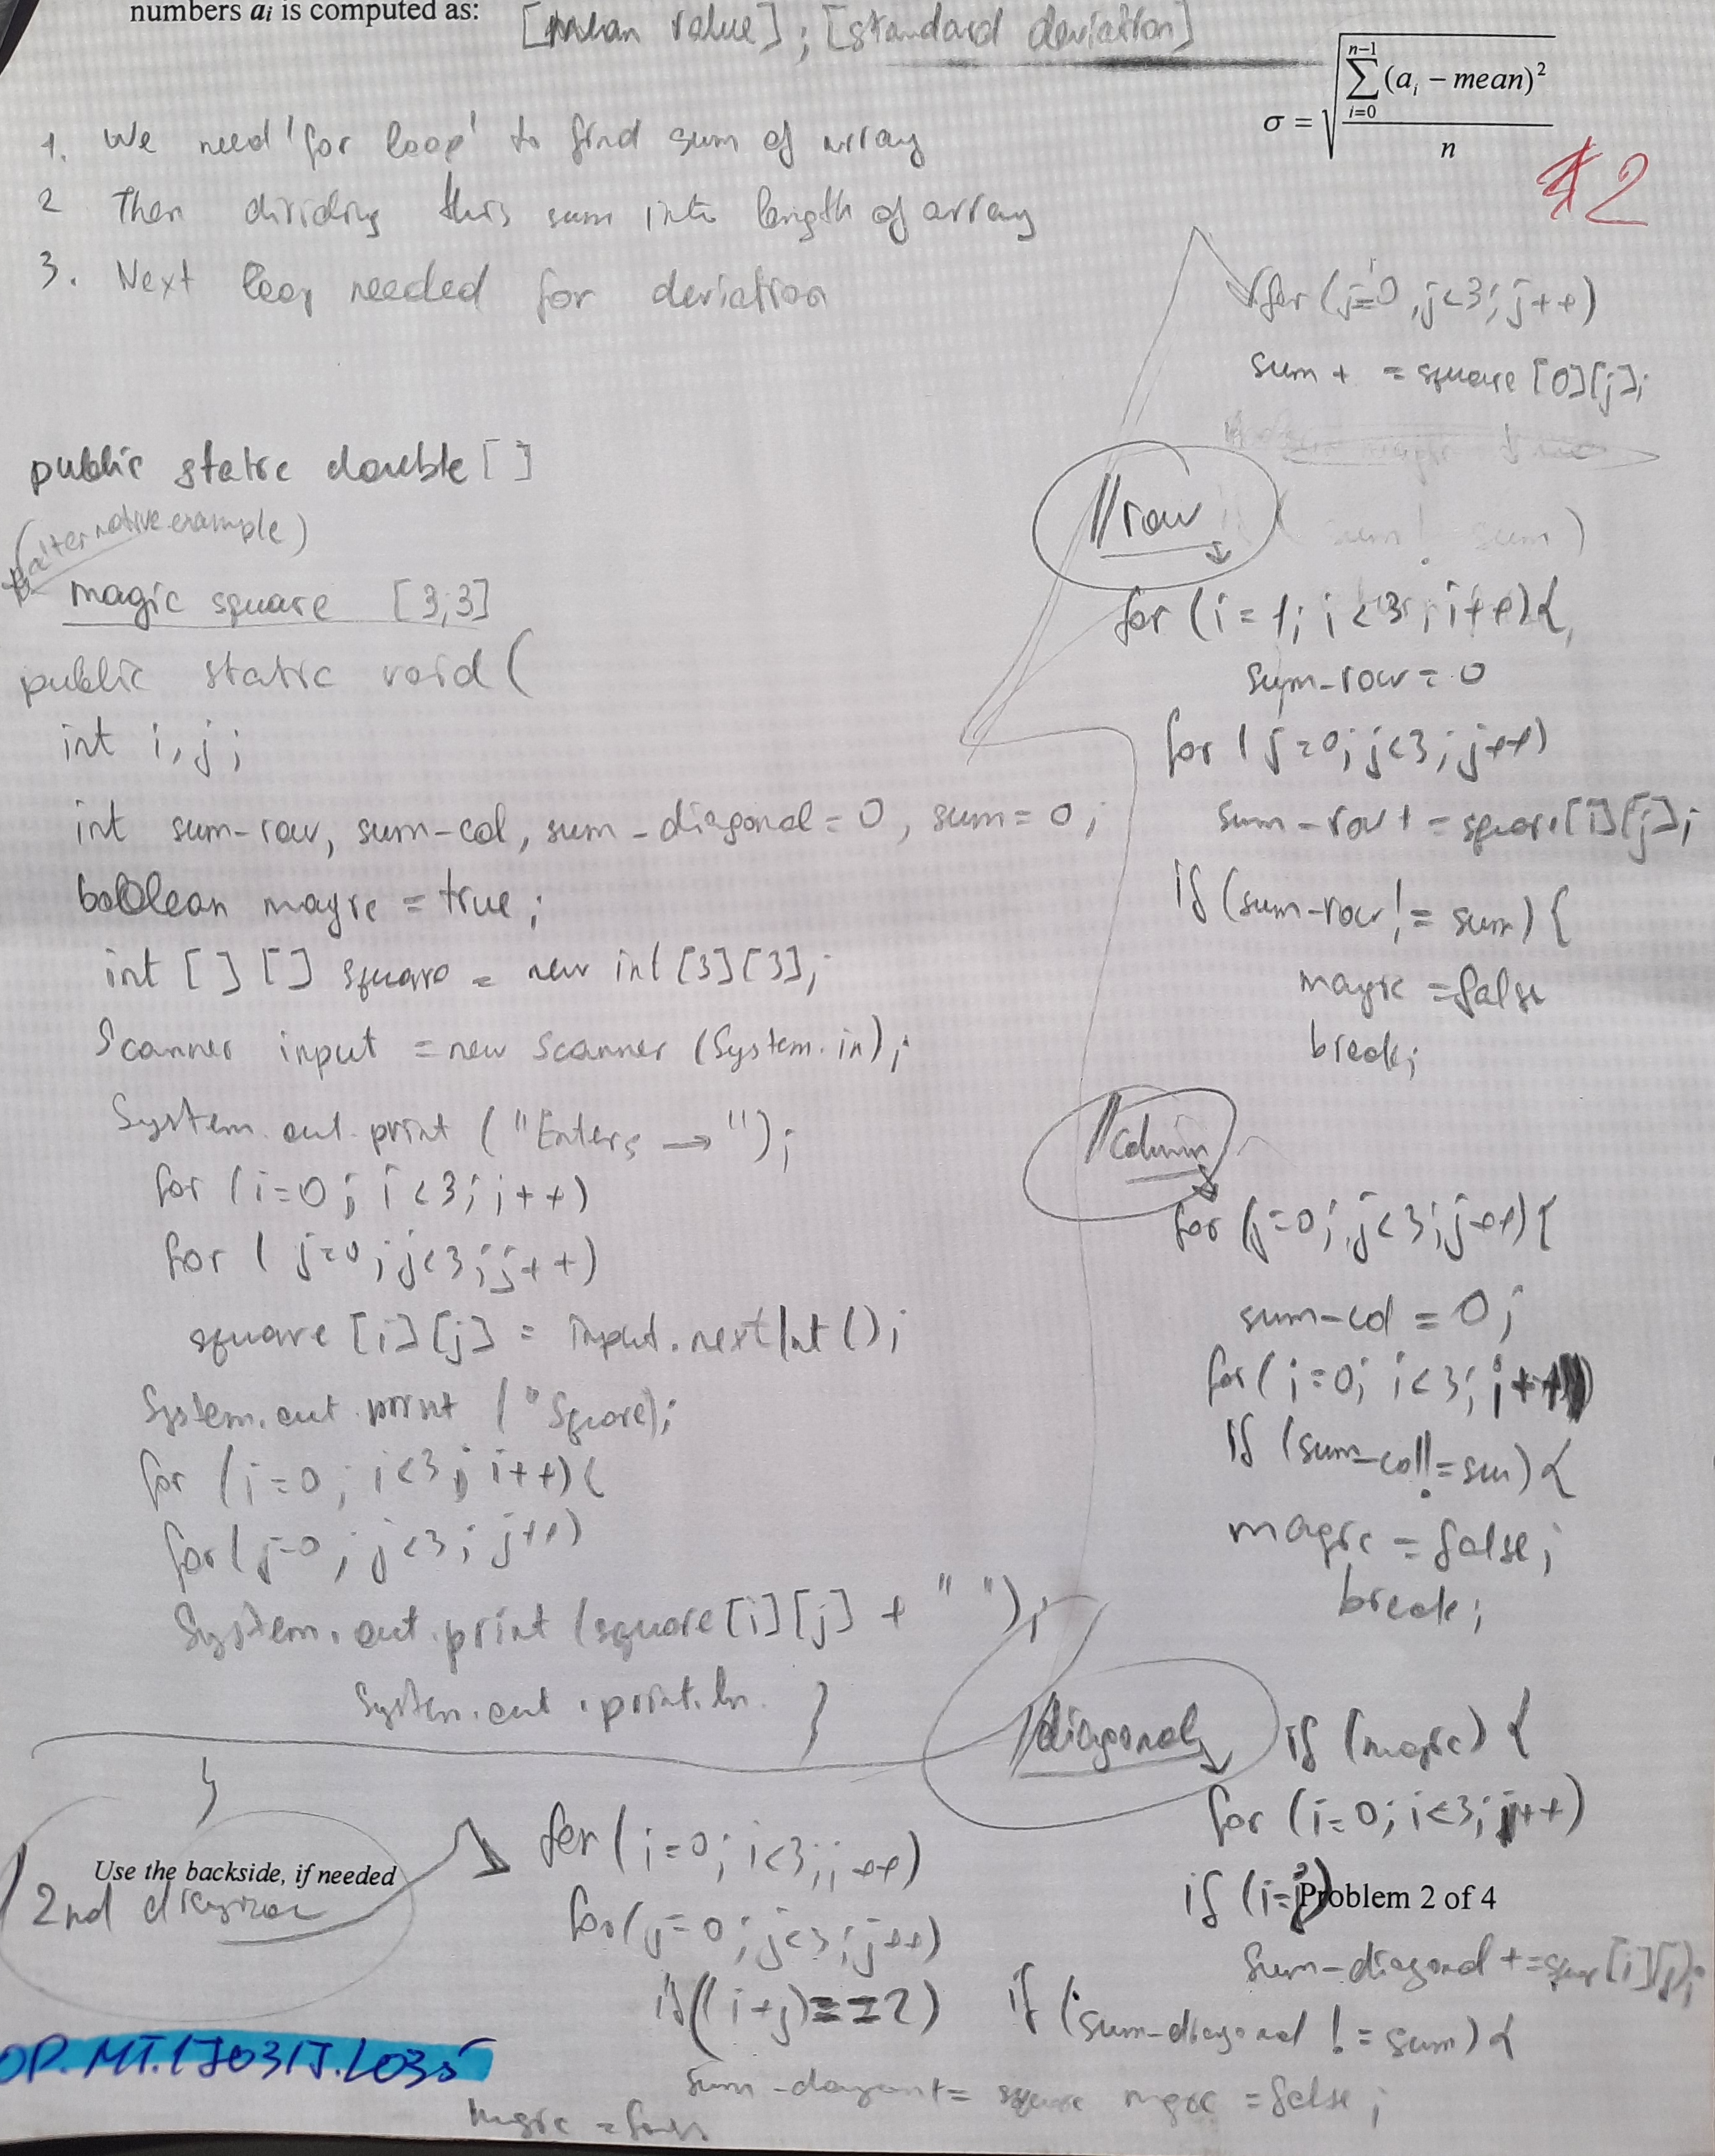 numbers ai is computed as:
[mean value]; [standard deviation]
σ = √(∑ i=0 n−1 (ai − mean)2 / n)
1. We need 'for loop' to find sum of array
2 Then dividing this sum into length of array
3. Next loop needed for deviation
2
public static double []
(alternative example)
magic square [3,3]
public static void (
int i, j;
int sum-row, sum-col, sum-diagonal = 0, sum = 0;
boolean magic = true;
int [] [] square = new int [3][3];
Scanner input = new Scanner (System.in);
System.out.print ("Enters → ");
for (i=0; i<3; i++)
for ( j=0; j<3; j++)
square [i][j] = input.nextInt ();
System.out.print ("Square);
for (i=0; i<3; i++) {
for (j=0; j<3; j++)
System.out.print (square[i][j] + " ");
System.out.print.ln. }
for (j=0, j<3; j++)
sum + = square [0][j];
//row
for (i = 1; i<3; i++) {
sum-row = 0
for ( j=0; j<3; j++)
sum-row + = square[i][j];
if (sum-row != sum) {
magic = false
break;
//column
for (j=0; j<3; j++) {
sum-col = 0;
for (i=0; i<3; i++)
if (sum-col != su) {
magic = false;
break;
//diagonal
if (magic) {
for (i=0; i<3; j++)
if (i=j)
sum-diagonal += [i][j];
if (sum-diagonal != sum) {
= false;
Use the backside, if needed
2nd
for (i=0; i<3; i++)
for (j=0; j<3; j++)
if ((i+j)==2)
= square
Problem 2 of 4